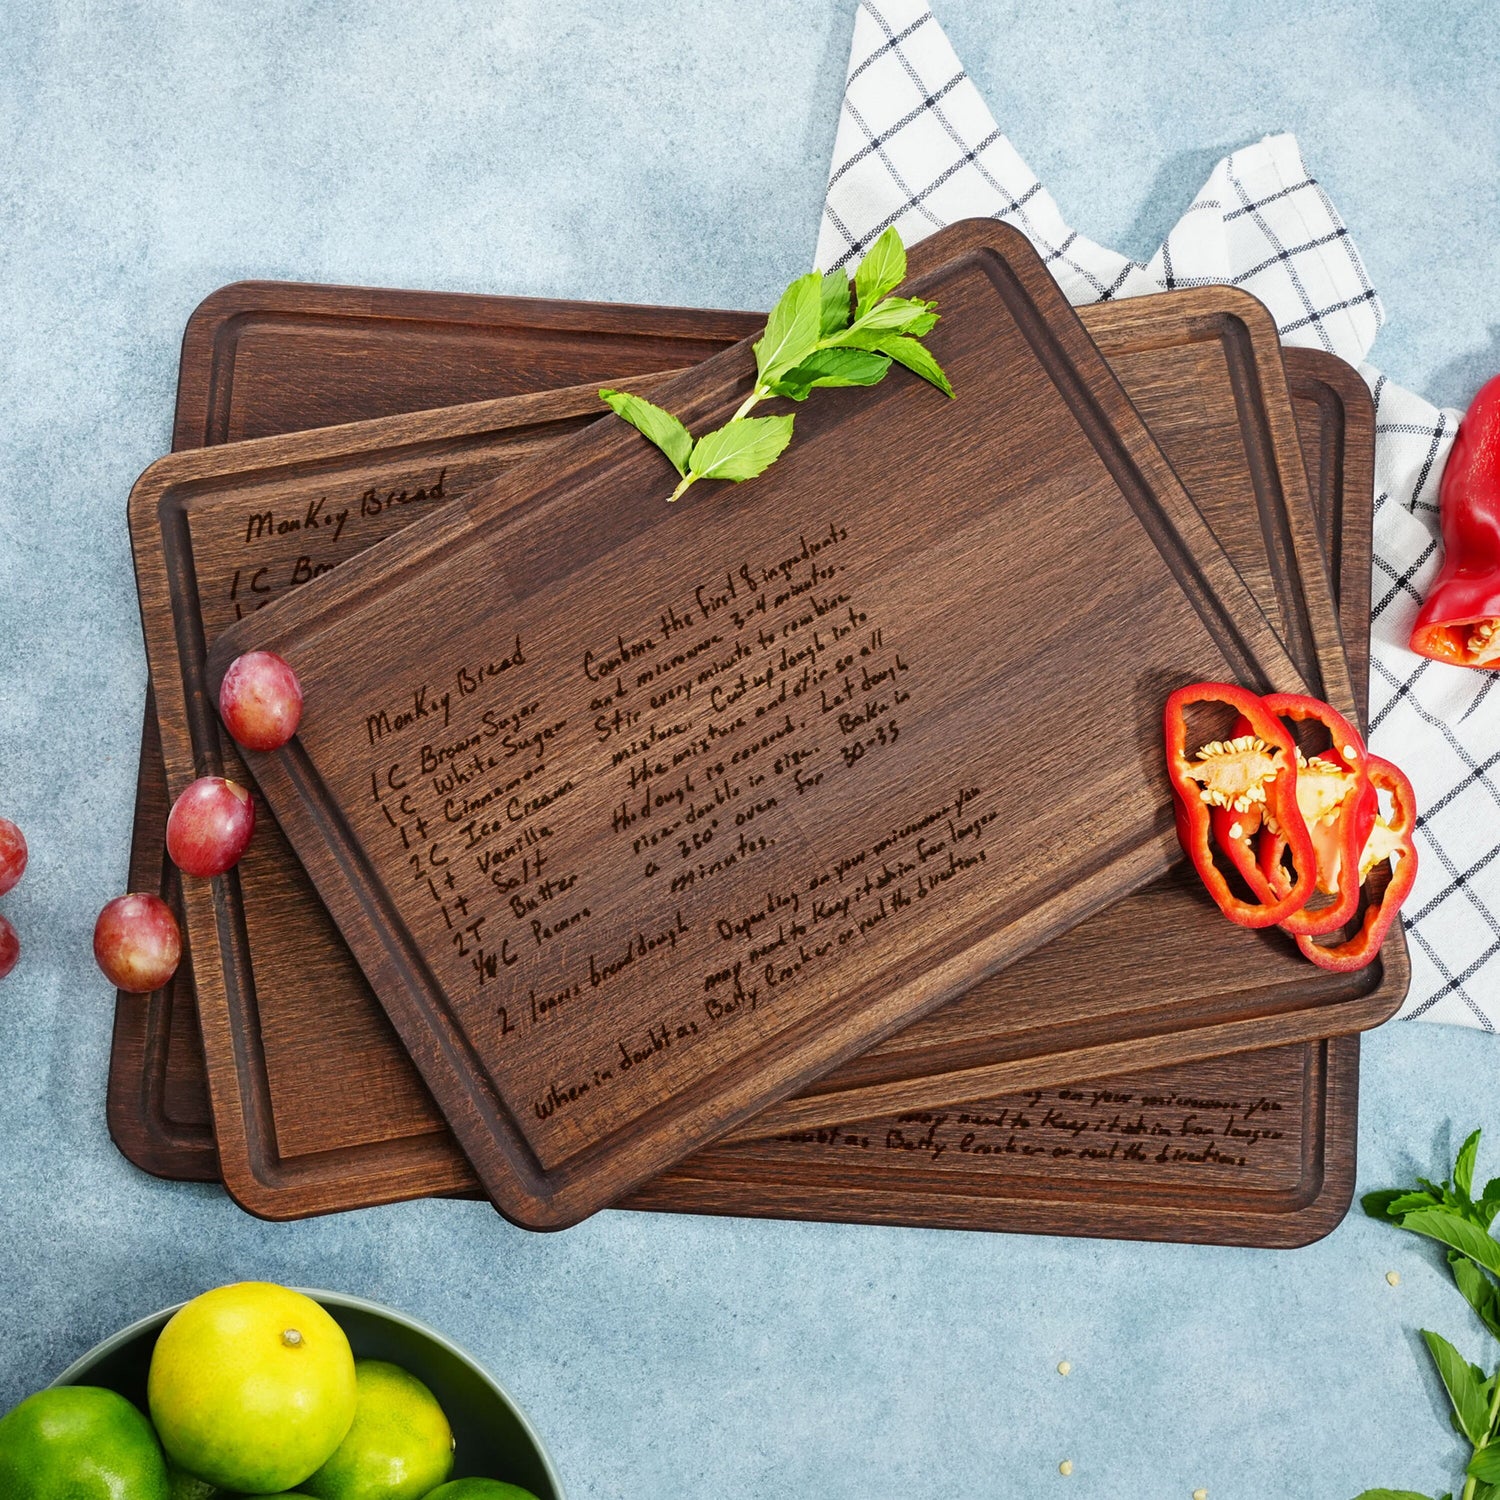 Monkey Bread
1 C Bro
1 C
Monkey Bread
1 C Brown Sugar
1 C White Sugar
1 t Cinnamon
2 C Ice Cream
1 t Vanilla
1 t Salt
2 T Butter
C Pecans
2 loaves bread dough
Combine the first 8 ingredients
and microwave 3-4 minutes.
Stir every minute to combine
mixture. Cut up dough into
the mixture and stir so all
the dough is covered. Let dough
rise-double in size. Bake in
a 350° oven for 30-35
minutes.
Depending on your microwave you
may need to keep it in for longer
When in doubt as Betty Crocker or read the directions
g on your microwave you
may need to keep it in for longer
doubt as Betty Crocker or read the directions